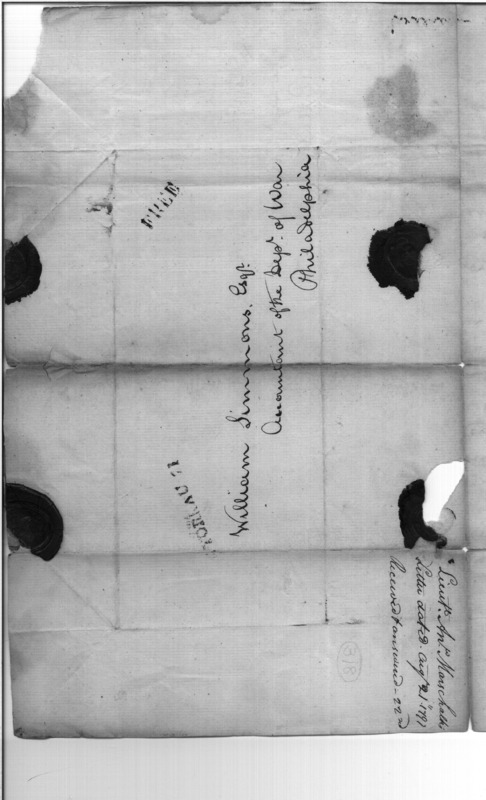 FREE
William Simmons, Esqr.
Accountant of the Dept. of War
Philadelphia
AU 21
Lieut. Anw. Marschalk
Letter dated Augt 21st 1797
Received & answered - 22d
318